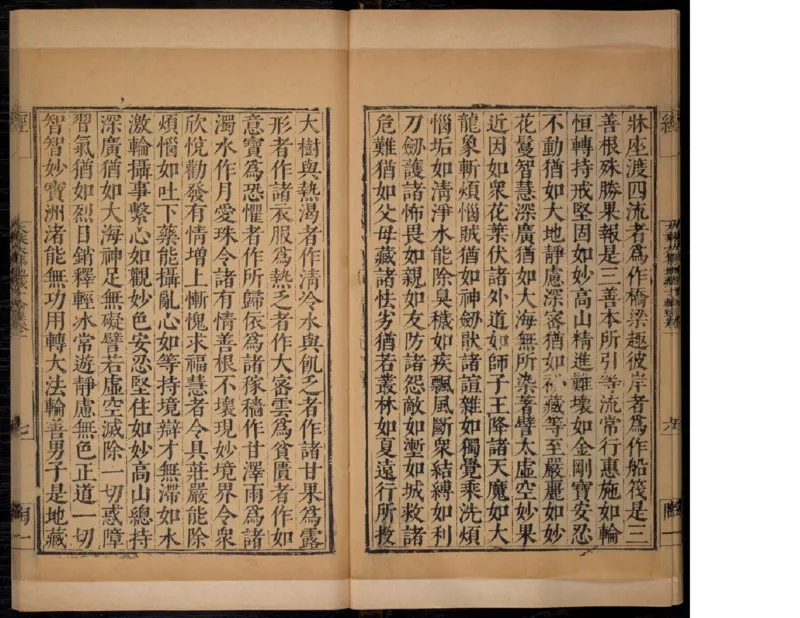 牀座渡四流者爲作橋梁趣彼岸者爲作船筏是三
善根殊勝果報是三善本所引等流常行惠施如輪
恒轉持戒堅固如妙高山精進難壞如金剛寶安忍
不動猶如大地靜慮深密猶如祕藏等至嚴麗如妙
花鬘智慧深廣猶如大海無所染著譬太虛空妙果
近因如衆花葉伏諸外道如師子王降諸天魔如大
龍象斬煩惱賊猶如神劒猒諸諠雜如獨覺乘洗煩
惱垢如清淨水能除臭穢如疾飄風斷衆結縛如利
刀劒護諸怖畏如親如友防諸怨敵如塹如城救諸
危難猶如父母藏諸怯劣猶若叢林如夏遠行所投
大樹與熱渴者作清冷水與飢乏者作諸甘果爲露
形者作諸衣服爲熱乏者作大密雲爲貧匱者作如
意寶爲恐懼者作所歸依爲諸稼穡作甘澤雨爲諸
濁水作月愛珠令諸有情善根不壞現妙境界令衆
欣悅勸發有情增上慚愧求福慧者令具莊嚴能除
煩惱如吐下藥能攝亂心如等持境辯才無滯如水
激輪攝事繫心如觀妙色安忍堅住如妙高山總持
深廣猶如大海神足無礙譬若虛空滅除一切惑障
習氣猶如烈日銷釋輕冰常遊靜慮無色正道一切
智智妙寶洲渚能無功用轉大法輪善男子是地藏
經
七